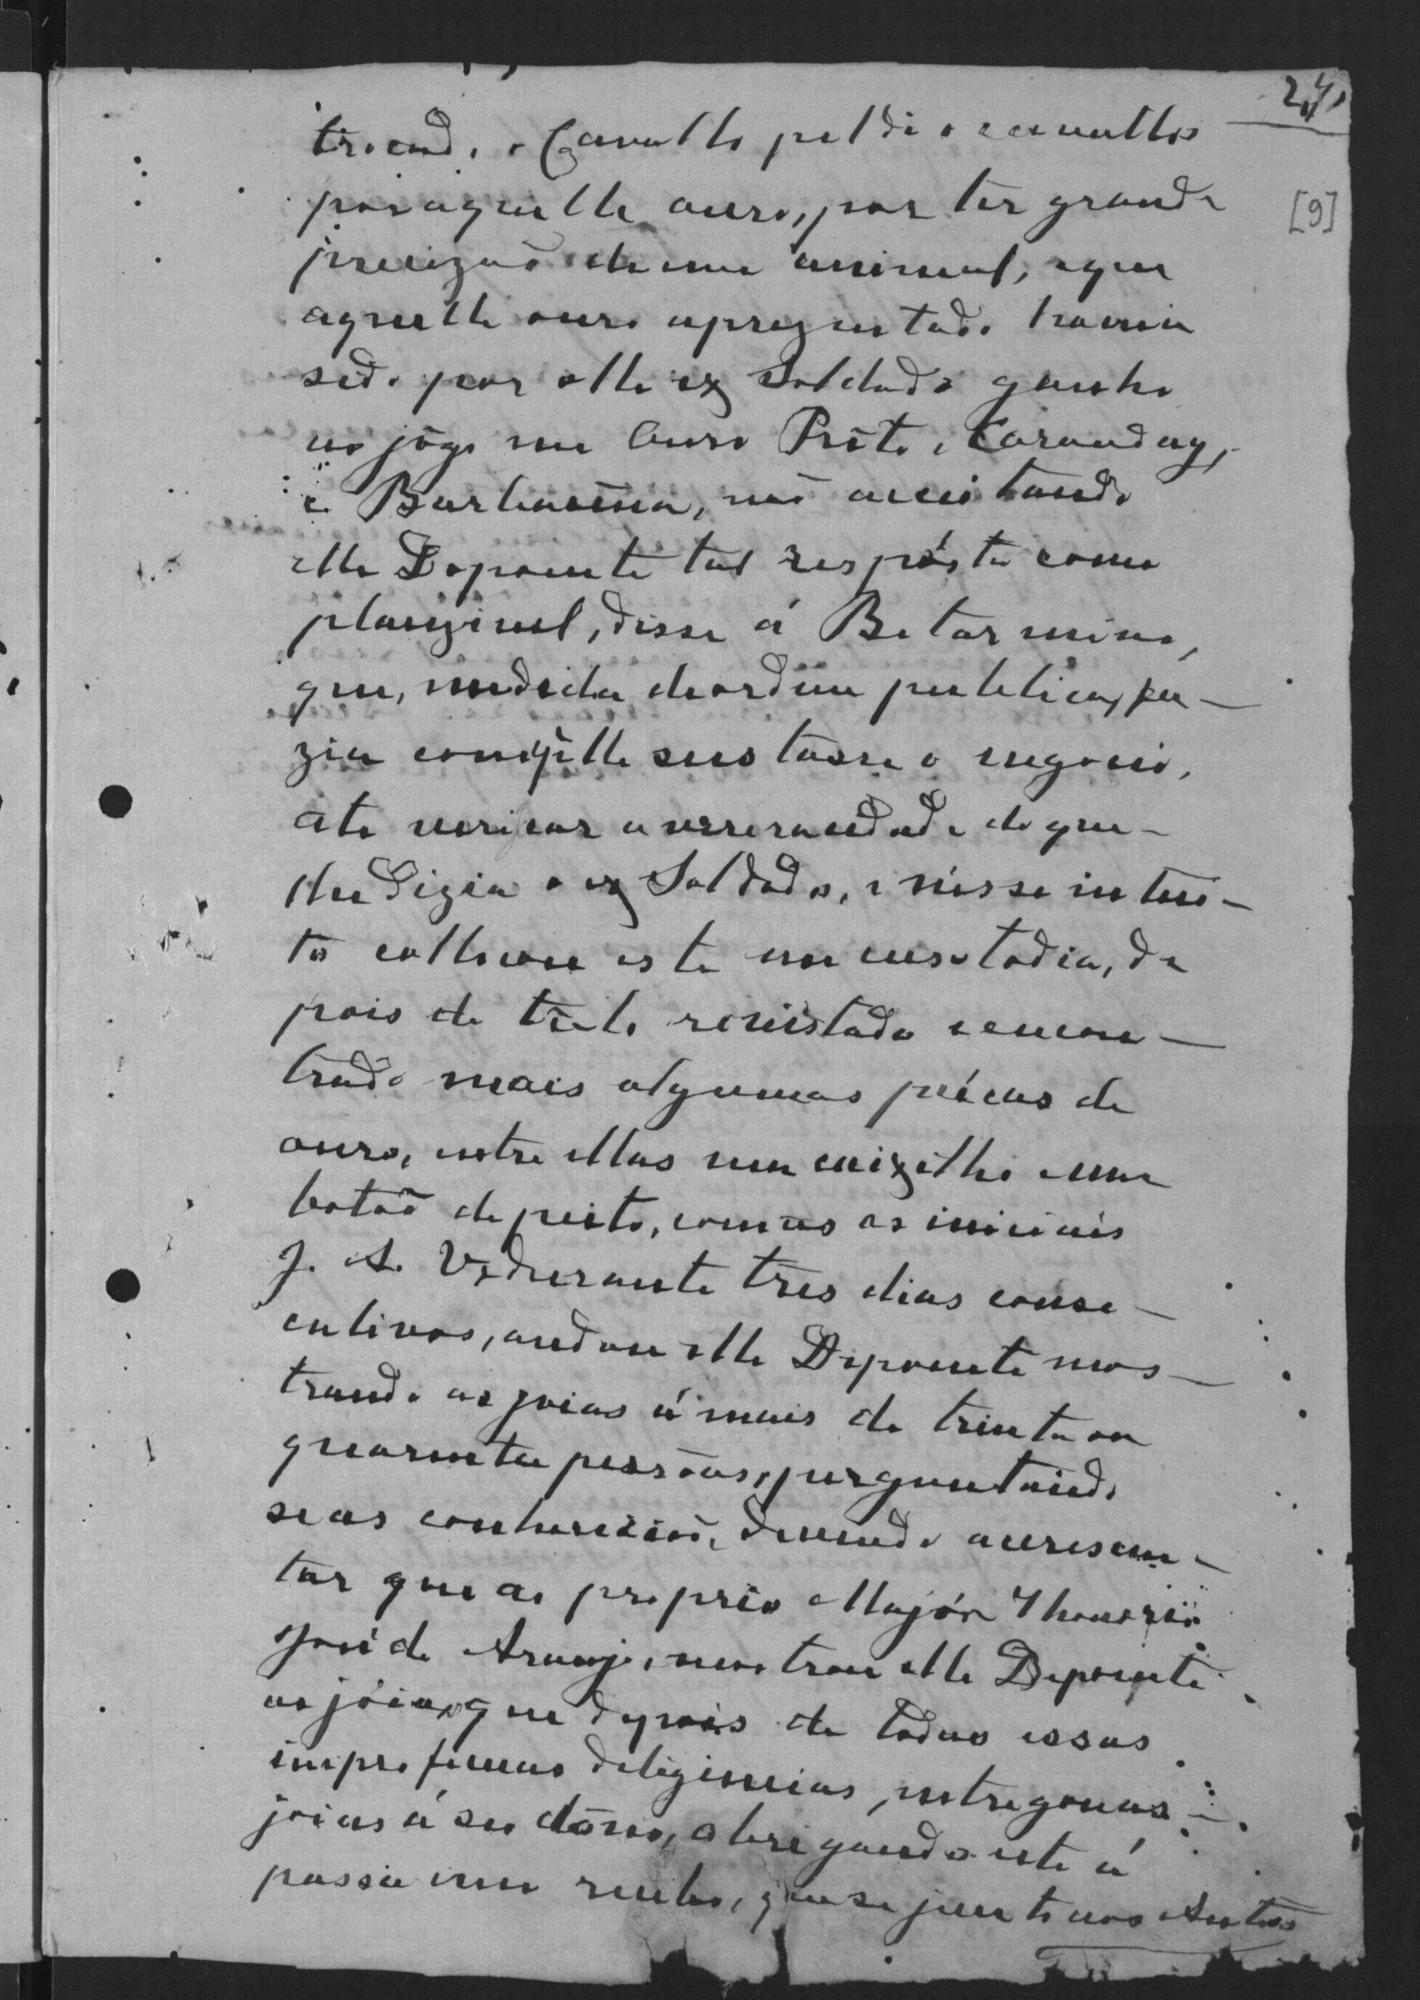 24
[9]
trocado o Cavallo pel di o cavallos
por aquelle ouro, por ter grande
precizaõ de um animal, e que
aquelle ouro aprezentado havia
sedo por elle ex Soldado ganho
no jôgo em Ouro Prêto, Caranday,
e Barbacêna, não acceitando
elle Depoente tal respósta como
plauzivel, disse á Betarmino,
que, medida de ordem publica, fa-
zia com q' elle sustasse o negocio,
ate vericar a verracidade do que
lhe dizia o ex Soldado, e nésse intui-
to collocou este em custodia, de
pois de têl-o revistado e encon-
trado mais algumas pécas de
ouro, entre ellas um caixilho e um
botaõ de peito, com as iniciais
J. A. V, e durante tres dias conse-
cutivos, andou elle Depoente mos-
trando as joias á mais de trinta ou
quarenta pessôas, perguntando
se as conhecizaõ, devendo accrescen-
tar que ao proprio Major Honorio
José de Araujo, mostrou elle Depoente
as jóias, que depois de todas essas
improfiuas deligencias, entregou as
joias á seu dôno, obrigando este á
passa um recibo, que se junto aos Autos